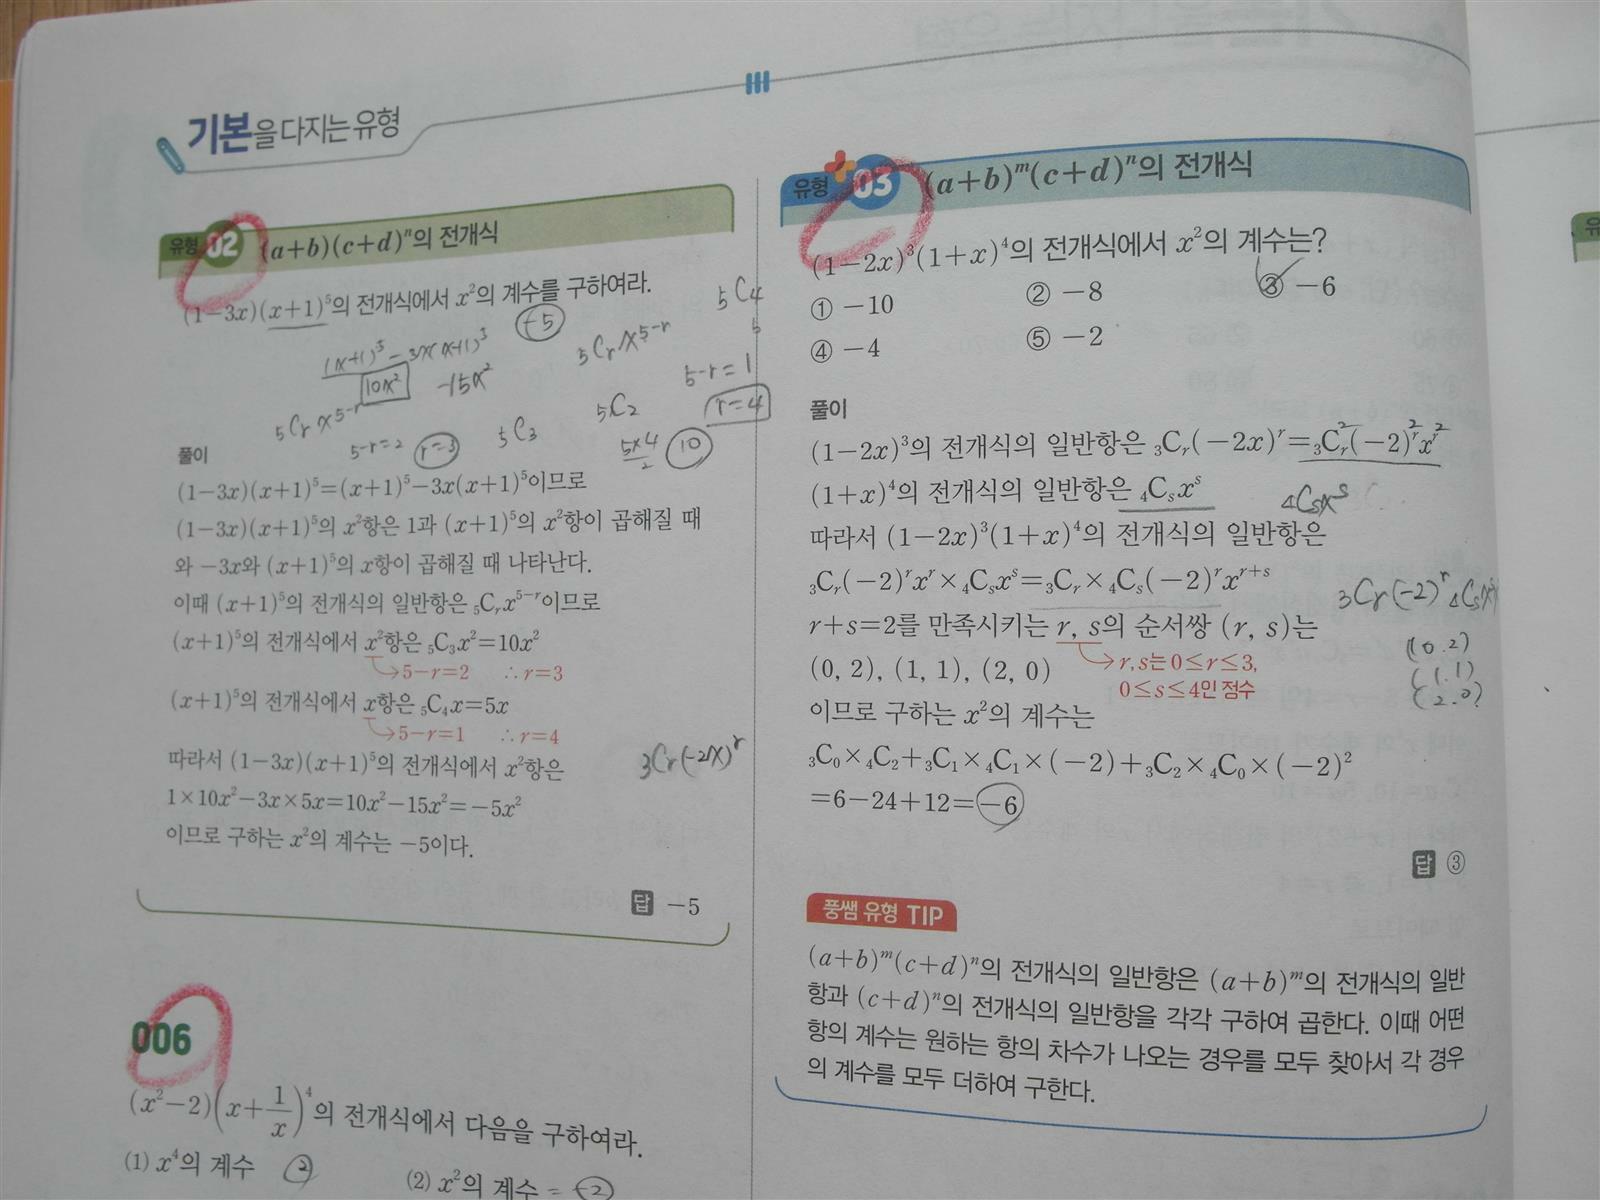 기본을 다지는 유형
유형 02 (a+b)(c+d)ⁿ의 전개식
(1-3x)(x+1)⁵의 전개식에서 x²의 계수를 구하여라.
-5
₅C₄
5
(x+1)⁵-3x(x+1)⁵
10x² -15x²
₅Cᵣx⁵⁻ʳ
5-r=1
r=4
₅Cᵣx⁵⁻ʳ
5-r=2 r=3
₅C₃
₅C₂
5×4/2 10
풀이
(1-3x)(x+1)⁵=(x+1)⁵-3x(x+1)⁵이므로
(1-3x)(x+1)⁵의 x²항은 1과 (x+1)⁵의 x²항이 곱해질 때
와 -3x와 (x+1)⁵의 x항이 곱해질 때 나타난다.
이때 (x+1)⁵의 전개식의 일반항은 ₅Cᵣx⁵⁻ʳ이므로
(x+1)⁵의 전개식에서 x²항은 ₅C₃x²=10x²
→5-r=2 ∴r=3
(x+1)⁵의 전개식에서 x항은 ₅C₄x=5x
→5-r=1 ∴r=4
따라서 (1-3x)(x+1)⁵의 전개식에서 x²항은
₃Cᵣ(-2x)ʳ
1×10x²-3x×5x=10x²-15x²=-5x²
이므로 구하는 x²의 계수는 -5이다.
답 -5
006
(x²-2)(x+1/x)⁴의 전개식에서 다음을 구하여라.
(1) x⁴의 계수 2
(2) x²의 계수 = -2
유형 03 (a+b)ᵐ(c+d)ⁿ의 전개식
(1-2x)³(1+x)⁴의 전개식에서 x²의 계수는?
① -10 ② -8 ③ -6
④ -4 ⑤ -2
풀이
(1-2x)³의 전개식의 일반항은 ₃Cᵣ(-2x)ʳ=₃Cᵣ(-2)ʳxʳ
2 2 2
(1+x)⁴의 전개식의 일반항은 ₄Cₛxˢ
₄Cₛxˢ
따라서 (1-2x)³(1+x)⁴의 전개식의 일반항은
₃Cᵣ(-2)ʳxʳ×₄Cₛxˢ=₃Cᵣ×₄Cₛ(-2)ʳxʳ⁺ˢ
₃Cᵣ(-2)ʳ ₄Cₛ
r+s=2를 만족시키는 r, s의 순서쌍 (r, s)는
(0, 2), (1, 1), (2, 0)
→r, s는 0≤r≤3,
0≤s≤4인 정수
(0.2)
(1.1)
(2.0)
이므로 구하는 x²의 계수는
₃C₀×₄C₂+₃C₁×₄C₁×(-2)+₃C₂×₄C₀×(-2)²
=6-24+12=-6
답 ③
풍쌤 유형 TIP
(a+b)ᵐ(c+d)ⁿ의 전개식의 일반항은 (a+b)ᵐ의 전개식의 일반
항과 (c+d)ⁿ의 전개식의 일반항을 각각 구하여 곱한다. 이때 어떤
항의 계수는 원하는 항의 차수가 나오는 경우를 모두 찾아서 각 경우
의 계수를 모두 더하여 구한다.